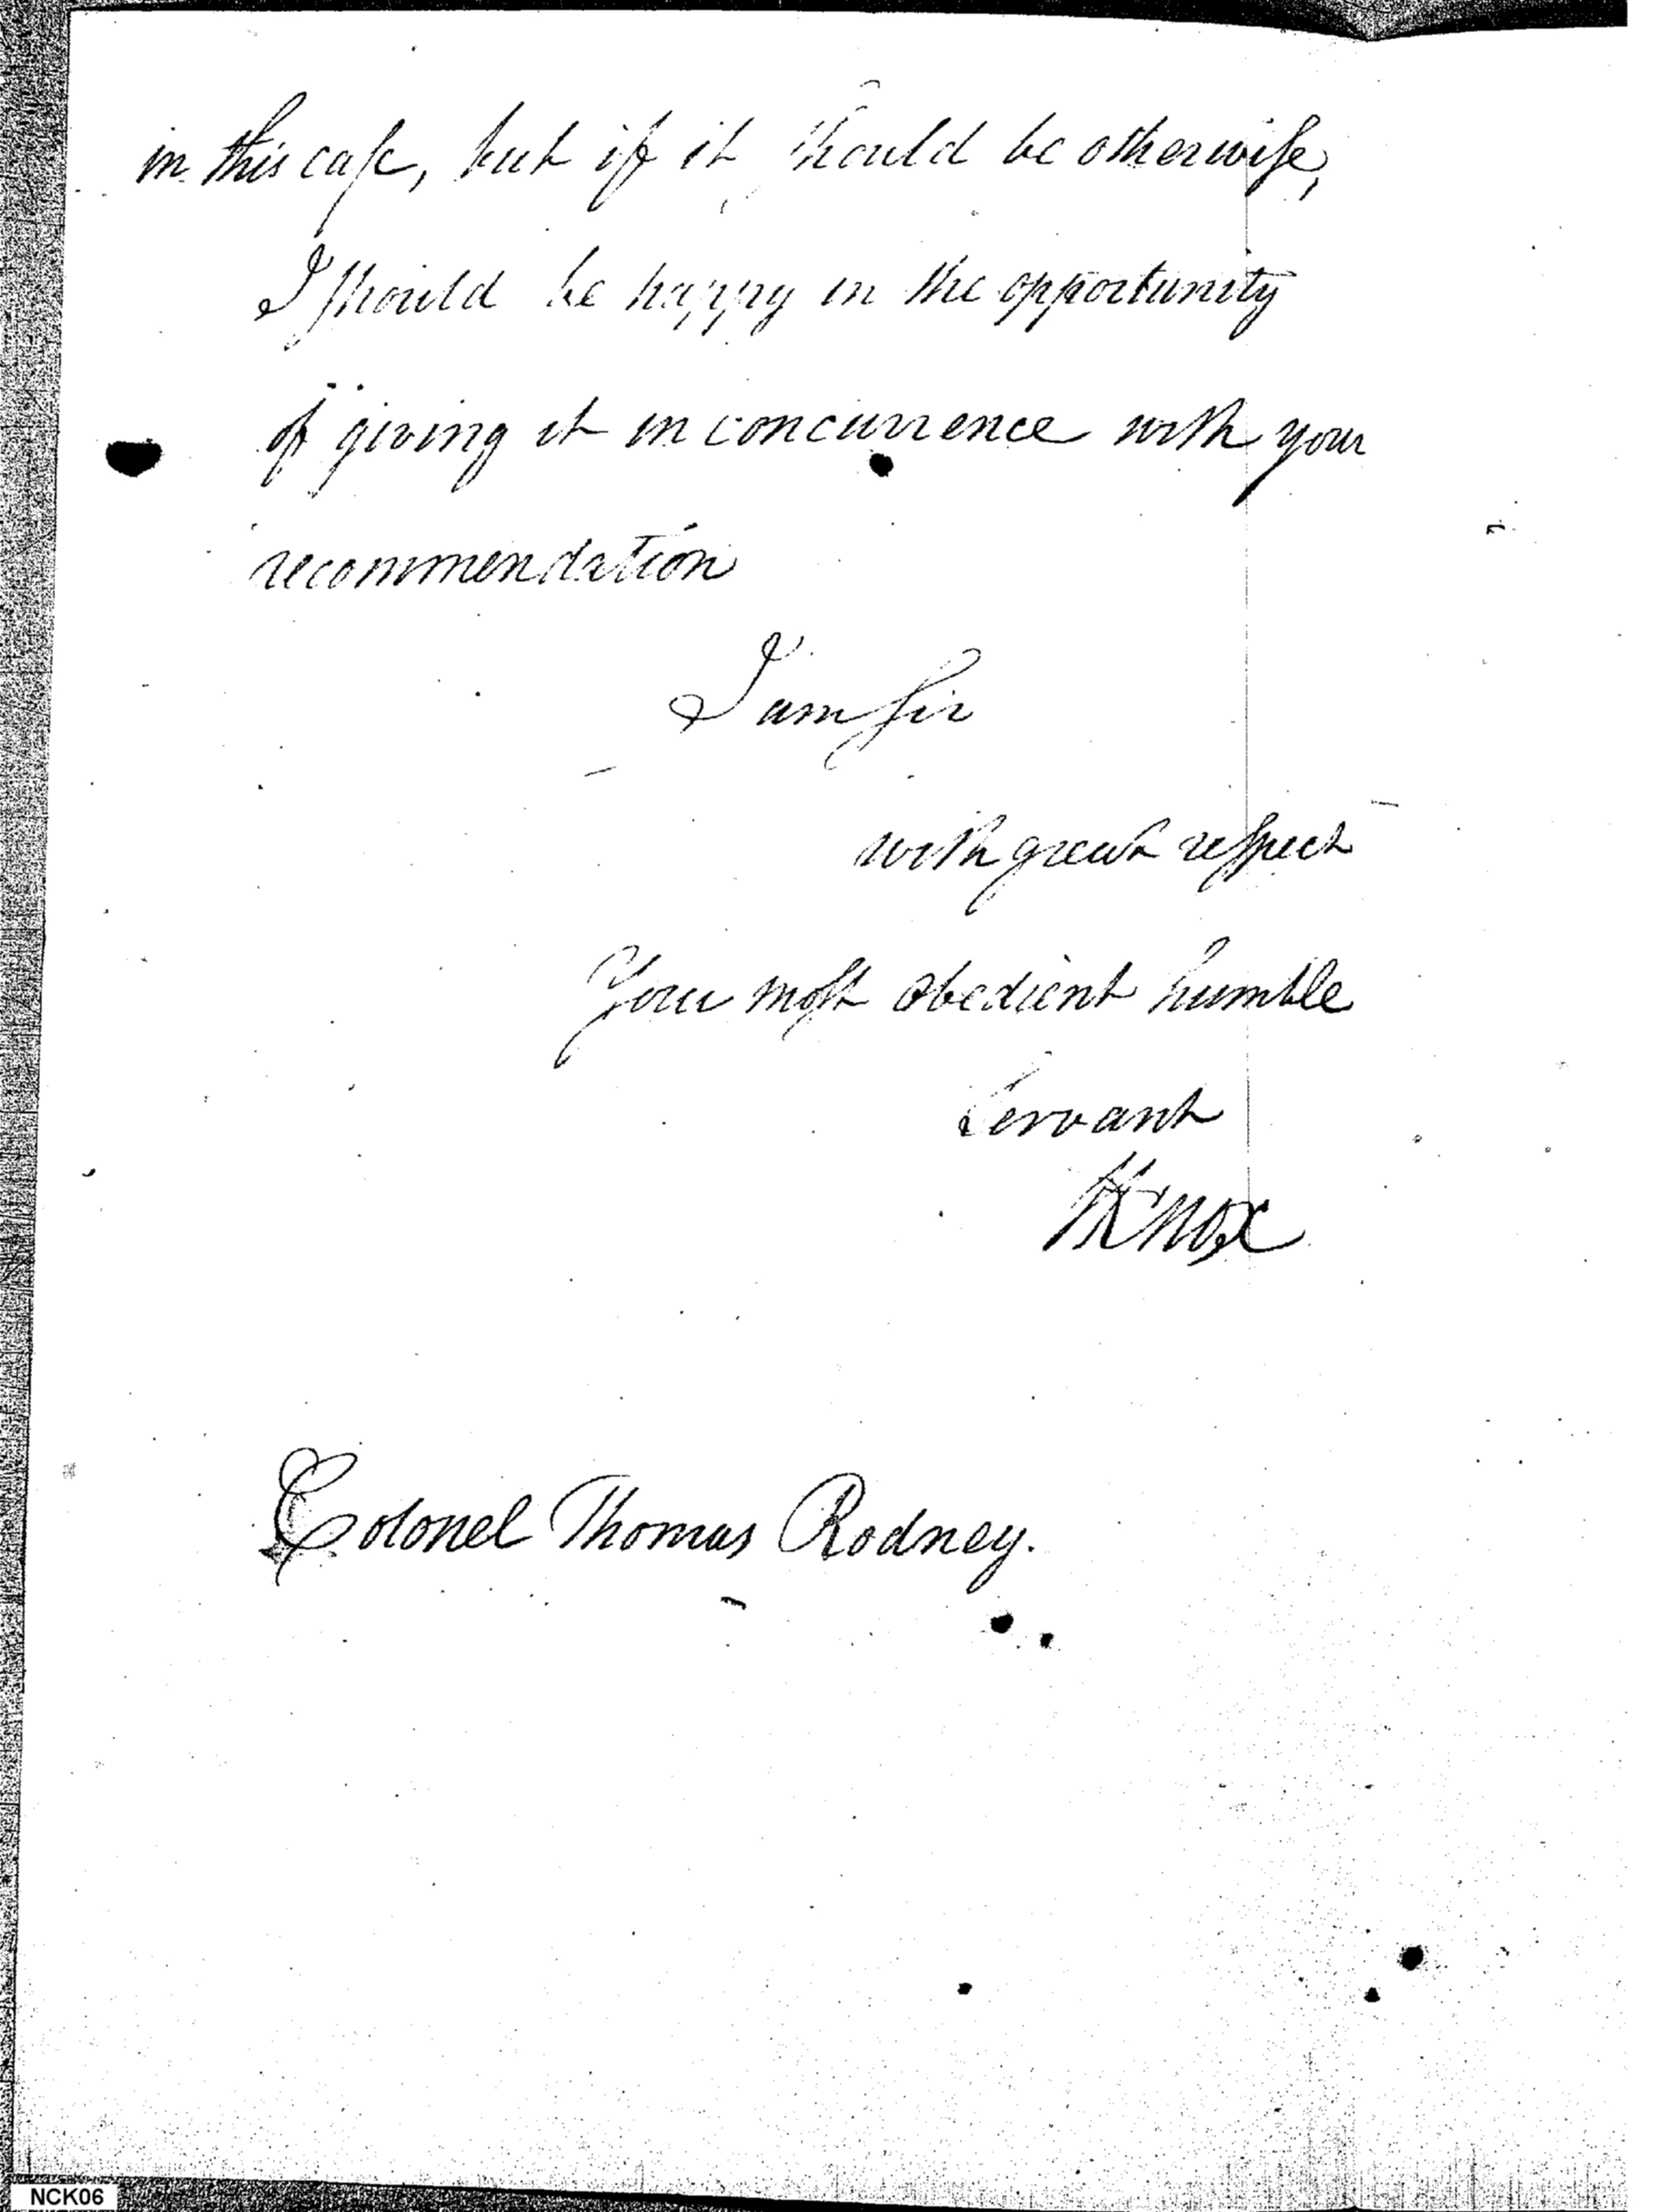 in this case, but if it should be otherwise,
I should be happy in the opportunity
of giving it in concurrence with your
recommendation
I am sir
with great respect
Your most obedient humble
servant
HKnox
Colonel Thomas Rodney.
NCK06